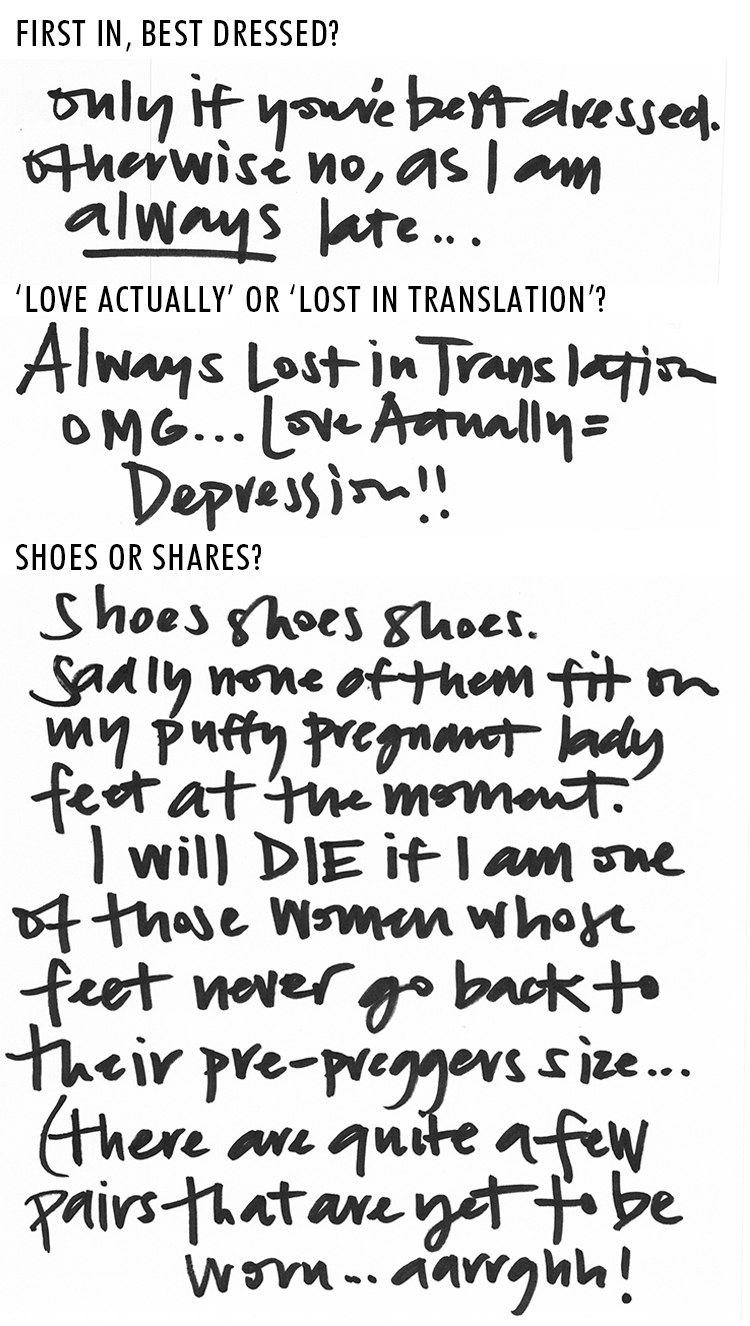 FIRST IN, BEST DRESSED?
only if you've best dressed.
otherwise no, as I am
always late...
'LOVE ACTUALLY' OR 'LOST IN TRANSLATION'?
Always Lost in Translation
OMG... Love Actually =
Depression!!
SHOES OR SHARES?
Shoes shoes shoes.
Sadly none of them fit on
my puffy pregnant lady
feet at the moment.
I will DIE if I am one
of those women whose
feet never go back to
their pre-preggers size...
(there are quite a few
pairs that are yet to be
worn... aarrghh!